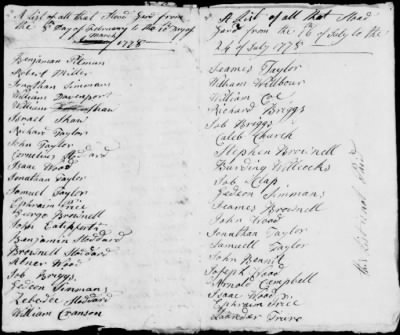 A list of all that Stood Gard from
the 8th Day of February to the 10th Day of
March 1778
Benjaman Allman
Robert Miller
Jonathan Simmons
William Davenport
William Shan
Israel Shaw
Richard Taylor
John Taylor
Cornelius Stodard
Isaac Wood
Jonathan Taylor
Samuel Taylor
Ephraim Price
George Brownell
John
Benjamin Stoddard
Brownell Stoddard
Abner Wood
Job Briggs
Gedeon Simmans
Zebedee Stodard
William Cranson
A list of all that Stood
Gard from the 16 of July to the
24 of July 1778
Jeames Taylor
William Wilbour
William Coe
Richard Briggs
Job Briggs
Caleb Church
Stephen Brownell
Burding Willcocks
Job Clap
Gedeon Simmans
Jeames Brownell
John Wood
Jonathan Taylor
Samuell Taylor
John Bennet
Joseph Wood
Arnold Campbell
Isaac Wood Jr
Ephraim Price
this list